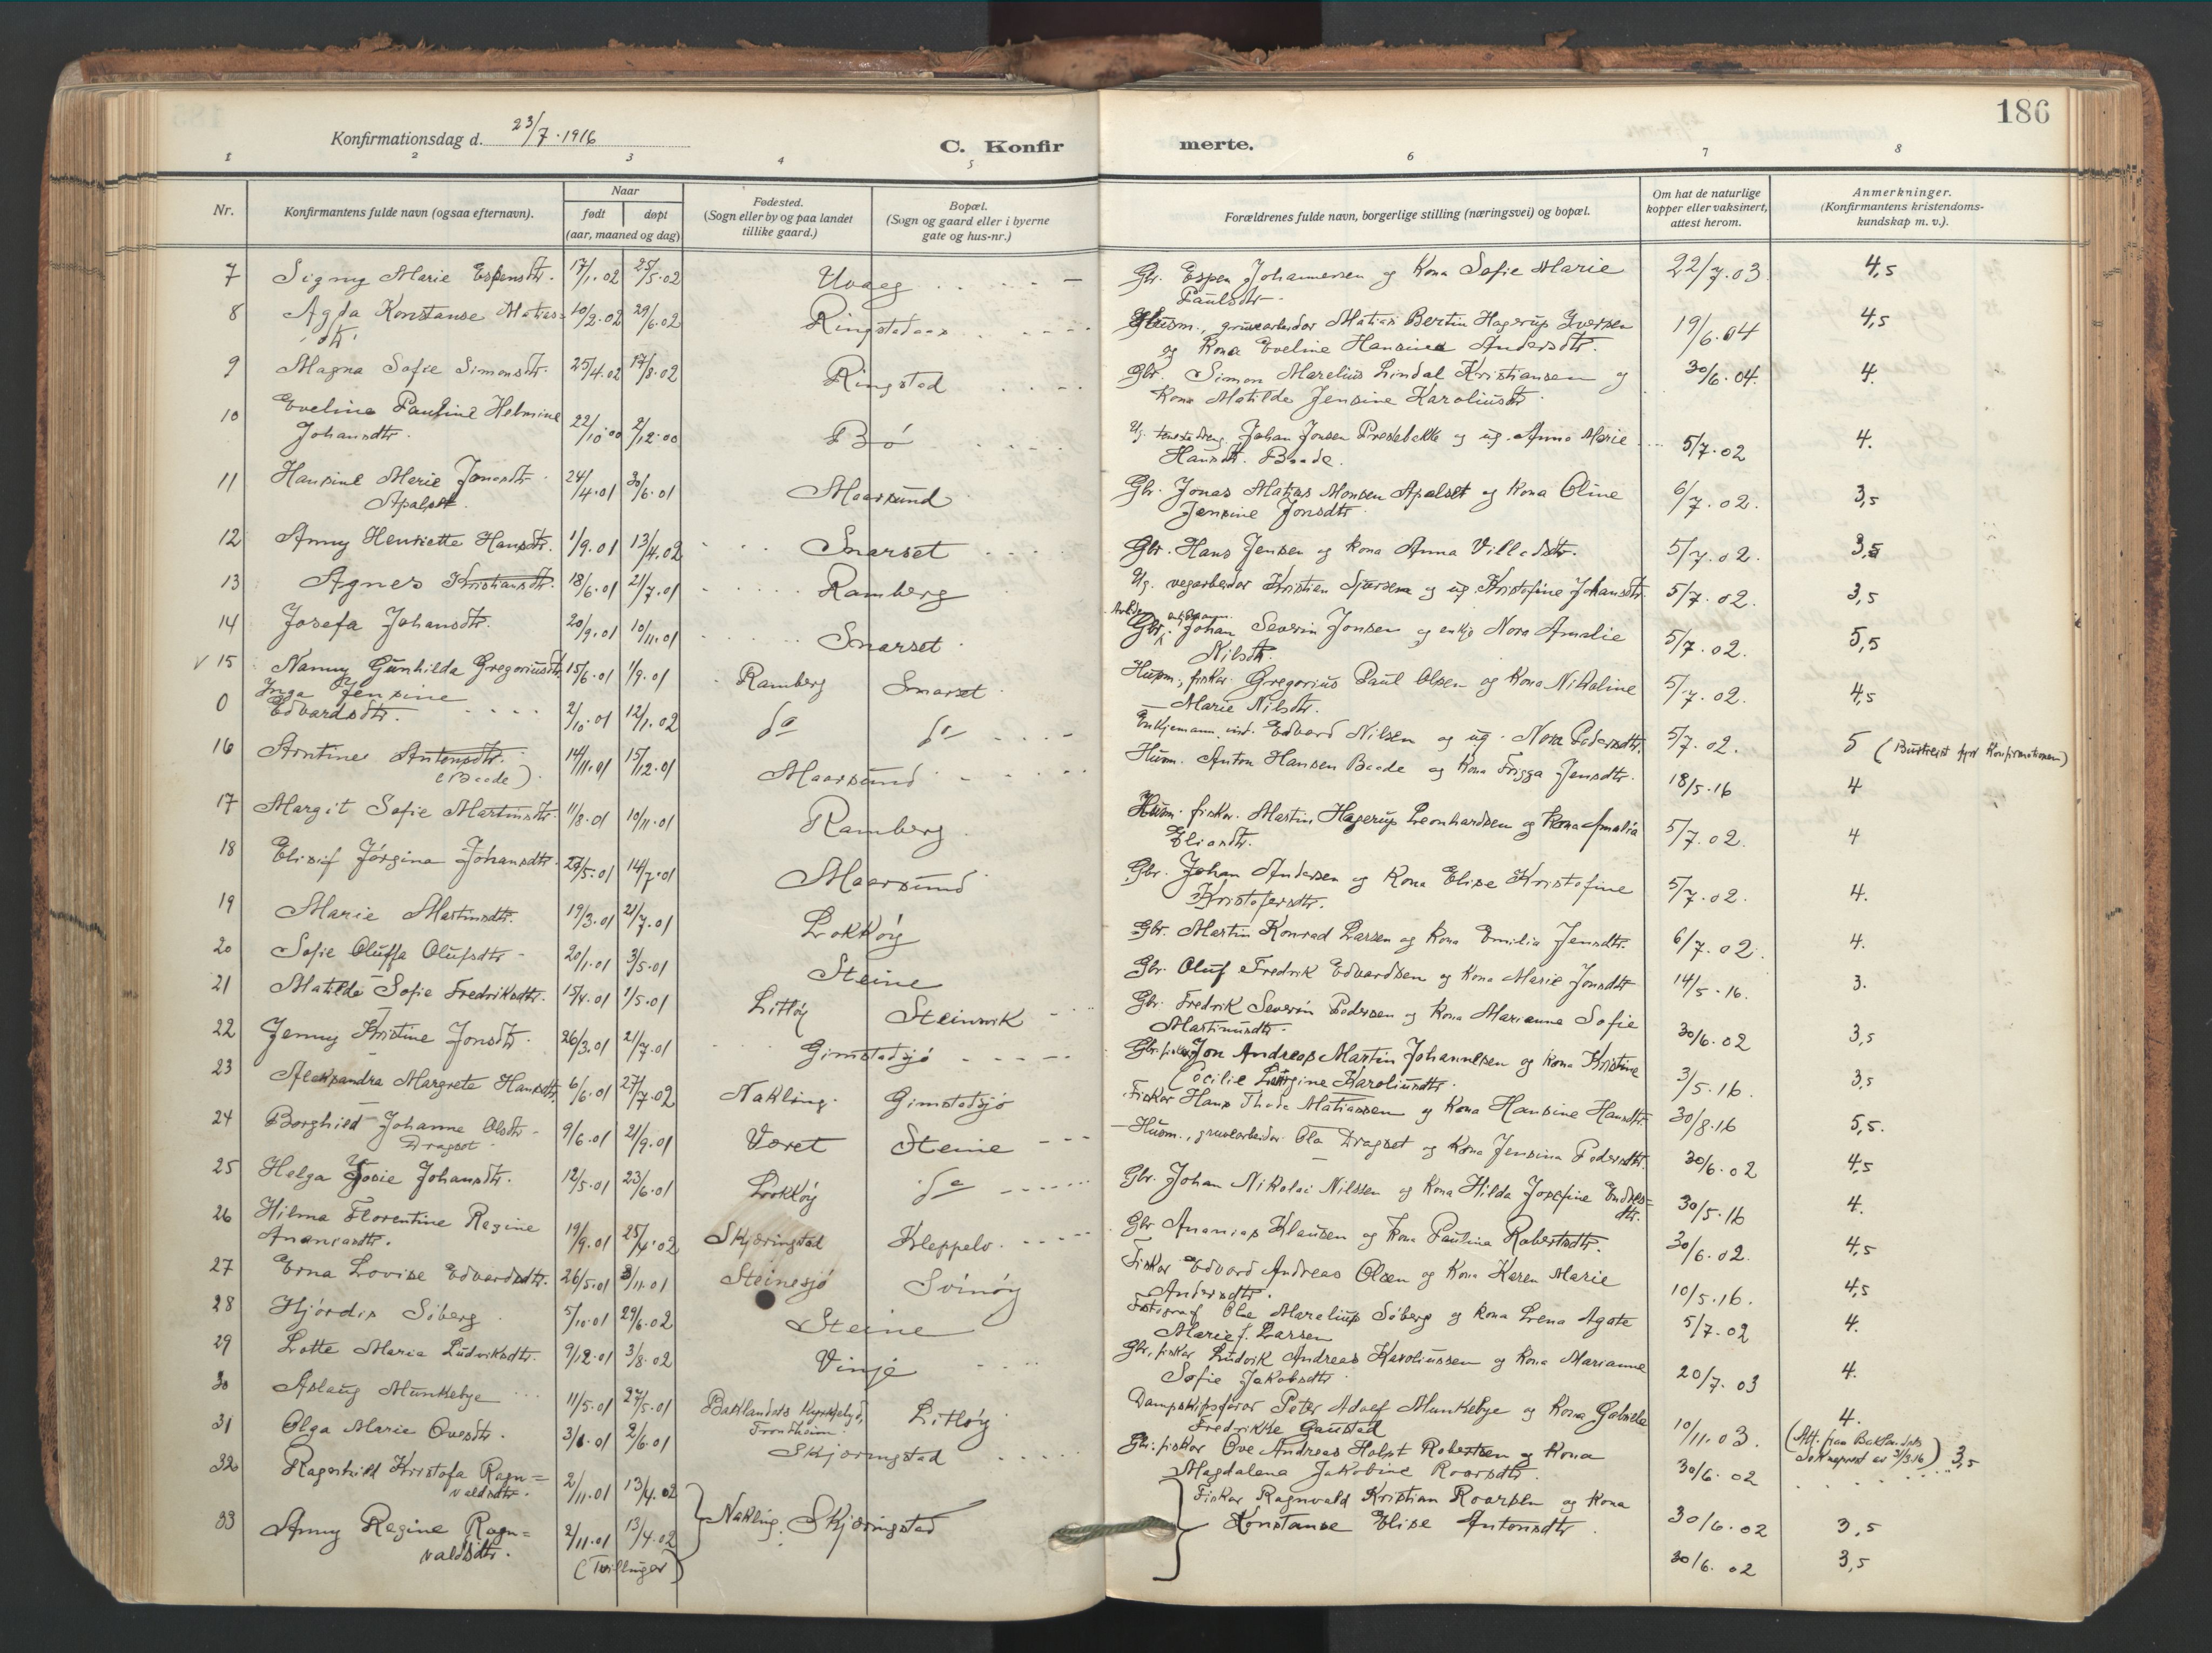 186
Konfirmationsdag d. 23/7.1916
C. Konfirmerte.
1 2 3 4 5 6 7 8
Nr. | Konfirmantens fulde navn (ogsaa efternavn). | Naar født | døpt (aar, maaned og dag) | Fødested. (Sogn eller by og paa landet tillike gaard.) | Bopæl. (Sogn og gaard eller i byerne gate og hus-nr.) | Forældrenes fulde navn, borgerlige stilling (næringsvei) og bopæl. | Om hat de naturlige kopper eller vaksinert, attest herom. | Anmerkninger. (Konfirmantens kristendomskundskap m. v.).
7 Signy Marie Espensdtr. 17/1.02 25/5.02 Uvaag Gbr. Espen Johannersen og Kona Sofie Marie 22/7.03 4,5
Paulsdtr.
8 Agda Konstanse Matias= 10/2.02 29/6.02 Ringstadaas Husm., gruvearbeider Matias Bertin Hagerup Iversen 19/6.04 4,5
dtr. og Kona Eveline Hansine Andersdtr.
9 Magna Sofie Simonsdtr. 25/4.02 17/8.02 Ringstad Gbr. Simon Marelius Lindal Kristiansen og 30/6.04. 4.
Kona Matilde Jensine Karoliusdtr.
10 Eveline Pauline Helmine 22/10.00 2/12.00 Bó Ug. Johan Jonsen Presebakke og ug. Anna Marie 5/7.02 4.
Johansdtr. Hansdtr. Baade.
11 Hansine Marie Jonasdtr. 24/4.01 30/6.01 Maarsund Gbr. Jonas Matias Monsen Apalset og Kona Oline 6/7.02. 3,5
Apalset. Jensine Jonsdtr.
12 Anny Henriette Hansdtr. 1/9.01 13/4.02 Snarset Gbr. Hans Jensen og Kona Anna Villadsdtr. 5/7.02. 3,5
13 Agnes Kristiansdtr. 18/6.01 21/7.01 Ramberg Ug. vegarbeider Kristian Sjursen og ug. Kristofine Johansdtr. 5/7.02. 3,5
14 Josefa Johansdtr. 20/9.01 10/11.01 Snarset Gbr. Johan Severin Jonsen og enkje Nora Amalie 5/7.02. 5,5
Nilsdtr.
v 15 Nanny Gunhilda Gregoriusdtr. 15/6.01 1/9.01 Ramberg Snarset Husm., fisker Gregorius Paul Olsen og Kona Nikoline 5/7.02. 4,5
Marie Nilsdtr.
0 Inga Jensine
Edvardsdtr. 2/10.01 12/1.02 do do Enkjemann, ind. Edvard Nilsen og ug. Nora Pedersdtr. 5/7.02. 5 (Burtreist fyr Konfirmationen)
16 Arntine Antonsdtr. 14/11.01 15/12.01 Maarsund Husm. Anton Hansen Baade og Kona Frigga Jensdtr. 18/5.16 4
(Baade)
17 Margit Sofie Martinsdtr. 11/8.01 10/11.01 Ramberg Husm. fisker. Martin Hagerup Leonhardsen og Kona Amalia 5/7.02. 4
Eliasdtr.
18 Elisif Jørgina Johansdtr. 27/5.01 14/7.01 Maarsund Gbr. Johan Andersen og Kona Elise Kristofine 5/7.02. 4.
Kristofersdtr.
19 Marie Martinsdtr. 19/3.01 21/7.01 Lokkøy Gbr. Martin Konrad Larsen og Kona Emilia Jensdtr. 6/7.02. 4.
20 Sofie Oluffa Olufsdtr. 20/1.01 3/5.01 Steine Gbr. Oluf Fredrik Edvardsen og Kona Marie Jonsdtr 14/5.16. 3.
21 Matilde Sofie Fredriksdtr. 15/4.01 1/5.01 Litløy Steinvik Gbr. Fredrik Severin Pedersen og Kona Marianne Sofie 30/6.02 3,5
Martinusdtr.
22 Jenny Kristine Jonsdtr. 26/3.01 21/7.01 Gimstadsjø Gbr. fisker Jon Andreas Martin Johannesen og Kona Kristine 3/5.16. 3,5
Cecilie Karoliusdtr.
23 Aleksandra Margrete Hansdtr. 6/6.01 27/7.02 Nakling. Gimstadsjø Fisker Hans Thode Matiassen og Kona Hansine Hansdtr. 30/8.16 5,5.
24 Borghild Johanne Olsdtr. 9/6.01 21/9.01 Været Steine Husm., gruvearbeider Ola Dragset og Kona Jensina Pedersdtr. 30/6.02 4,5
Dragset
25 Helga Josie Johansdtr. 12/5.01 23/6.01 Lokkøy do Gbr. Johan Nikolai Nilssen og Kona Hilda Josefine Endres= 30/5.16 4.
dtr.
26 Hilma Florentine Regine 19/9.01 25/4.02 Skjæringstad Kleppelv. Gbr Ananias Klausen og Kona Paulina Robertsdtr. 30/6.02. 4,5
Ananiasdtr.
27 Erna Lovise Edvardsdtr. 26/5.01 3/11.01 Steinesjø Svinøy Fisker Edvard Andreas Olsen og Kona Karen Marie 10/5.16. 4,5
Andersdtr.
28 Hjørdis Søberg 5/10.01 29/6.02 Steine Fotograf Ole Marelius Søberg og Kona Lena Agate 5/7.02 4.
Marie f. Larsen
29 Lotte Maria Ludviksdtr. 9/12.01 3/8.02 Vinje Gbr, fisker Ludvik Andreas Karoliussen og Kona Marianne 20/7.03 4.
Sofie Jakobsdtr
30 Aslaug Munkebye 11/5.01 27/5.01 Baklandets Litløy Dampskipsfører Peter Adolf Munkebye og Kona Gabriele 10/11.03. 4.
Trondheim. Fredrikke Gaustad (Att. fraa Baklandets Sokneprest av 31/3.16)
31 Olga Marie Ovesdtr. 3/1.01 2/6.01 Skjæringstad Gbr. fisker Ove Andreas Holst Robertsen og Kona 30/6.02 3,5
Magdalena Jakobine Roarsdtr.
32 Ragnhild Kristofa Ragn= 2/11.01 13/4.02 Nakling. Skjæringstad Fisker Ragnvald Kristian Roarsen og Kona 30/6.02 3,5
valdsdtr. Konstanse Elise Antonsdtr.
33 Anny Regine Ragn= 2/11.01 13/4.02 30/6.02 3,5
valdsdtr. (Tvillinger)